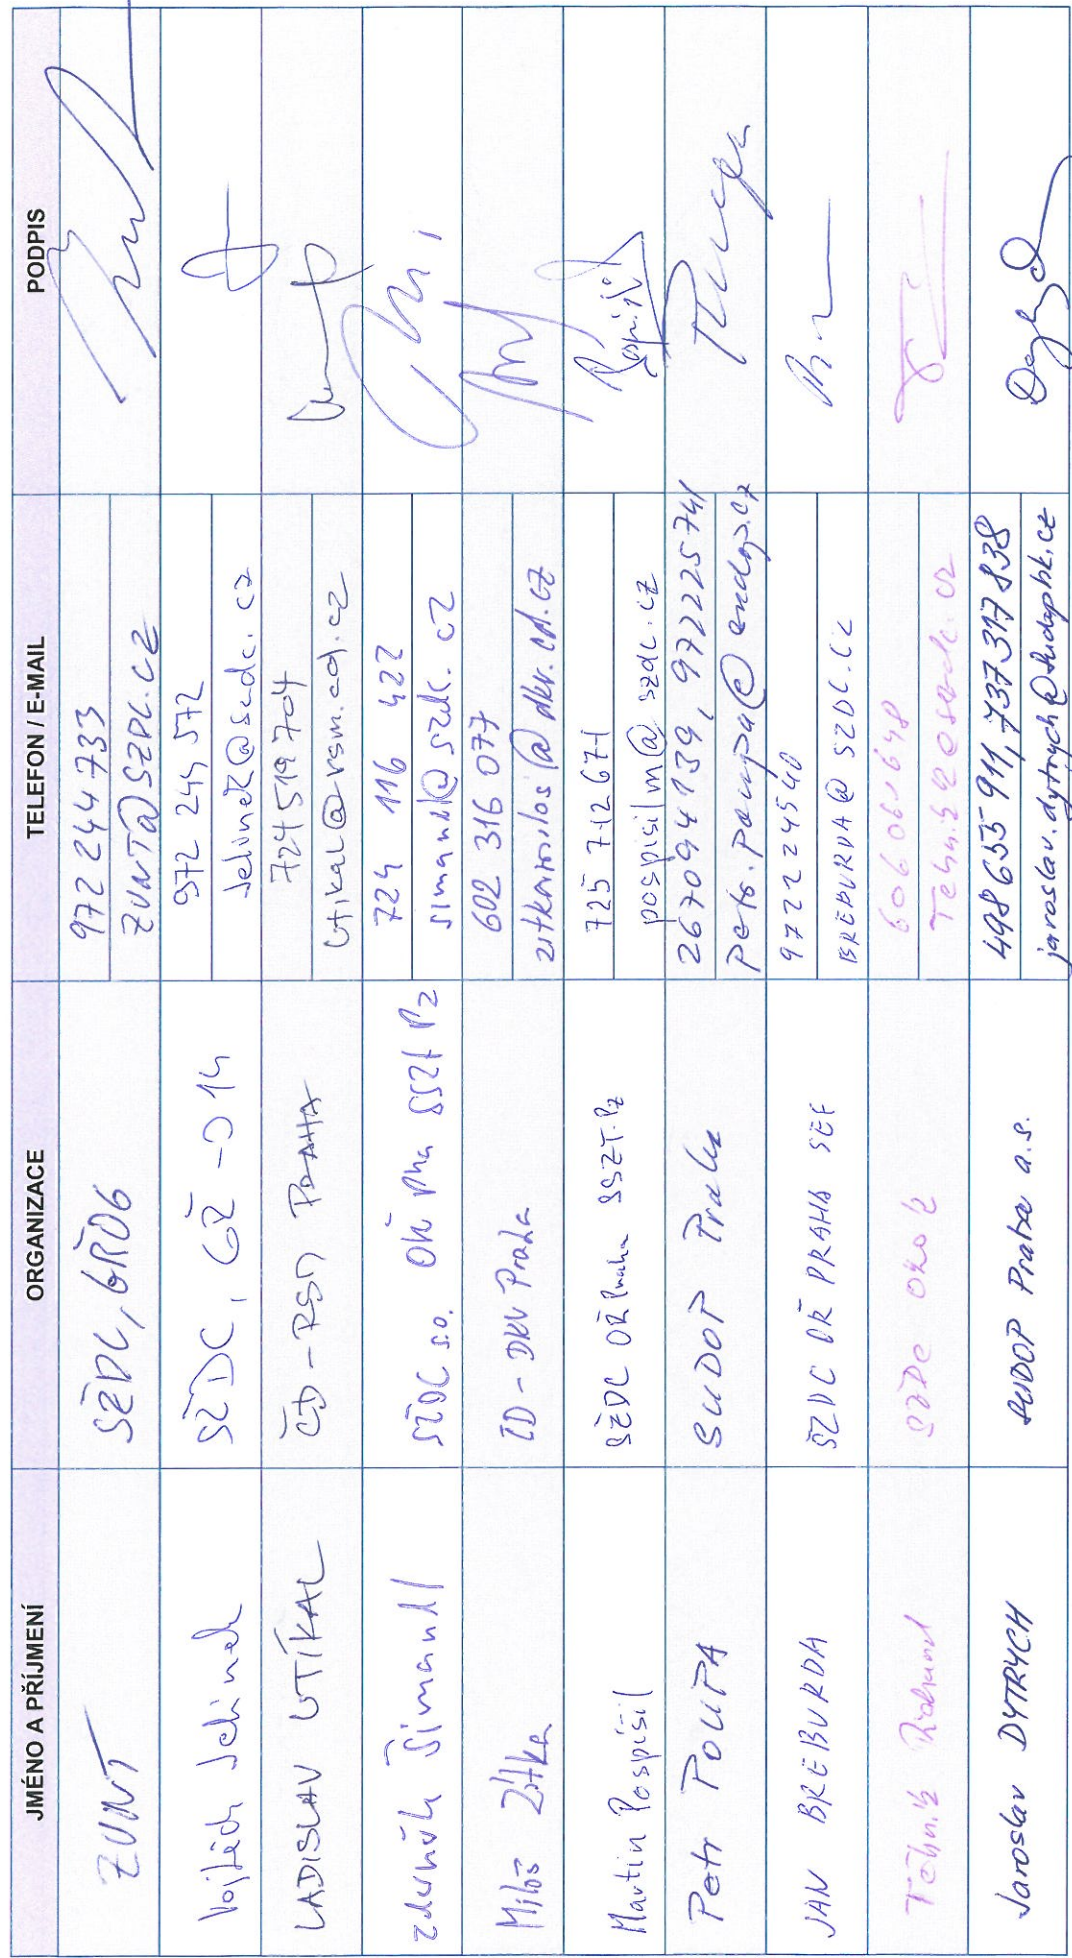 JMÉNO A PŘÍJMENÍ ORGANIZACE TELEFON / E-MAIL PODPIS
ZUNT SŽDC, GŘO6 972 244 733
ZUNT@SZDC.CZ
Vojtěch Jelínek SŽDC, GŘ - O14 972 244 572
Jelinek@szdc.cz
LADISLAV UTÍKAL ČD - RSM PRAHA 724 519 704
Utikal@rsm.cd.cz
Zdeněk Šimandl SŽDC s.o. OŘ Pha SSZT Pz 724 116 422
simandl@szdc.cz
Miloš Zítka ČD - DKV Praha 602 316 077
zitkamilos@dkv.cd.cz
Martin Pospíšil SŽDC OŘ Praha SSZT. Pz 725 712 671 Pospíšil
pospisilm@szdc.cz
Petr POUPA SUDOP Praha 267094139, 972225741 Poupa
Petr.Poupa@sudop.cz
JAN BREBURDA SŽDC OŘ PRAHA SEE 972224540
BREBURDA@SZDC.CZ
SŽDC 606061648
Jaroslav DYTRYCH SUDOP Praha a.s. 498 655 911, 737 317 838
jaroslav.dytrych@sudophk.cz